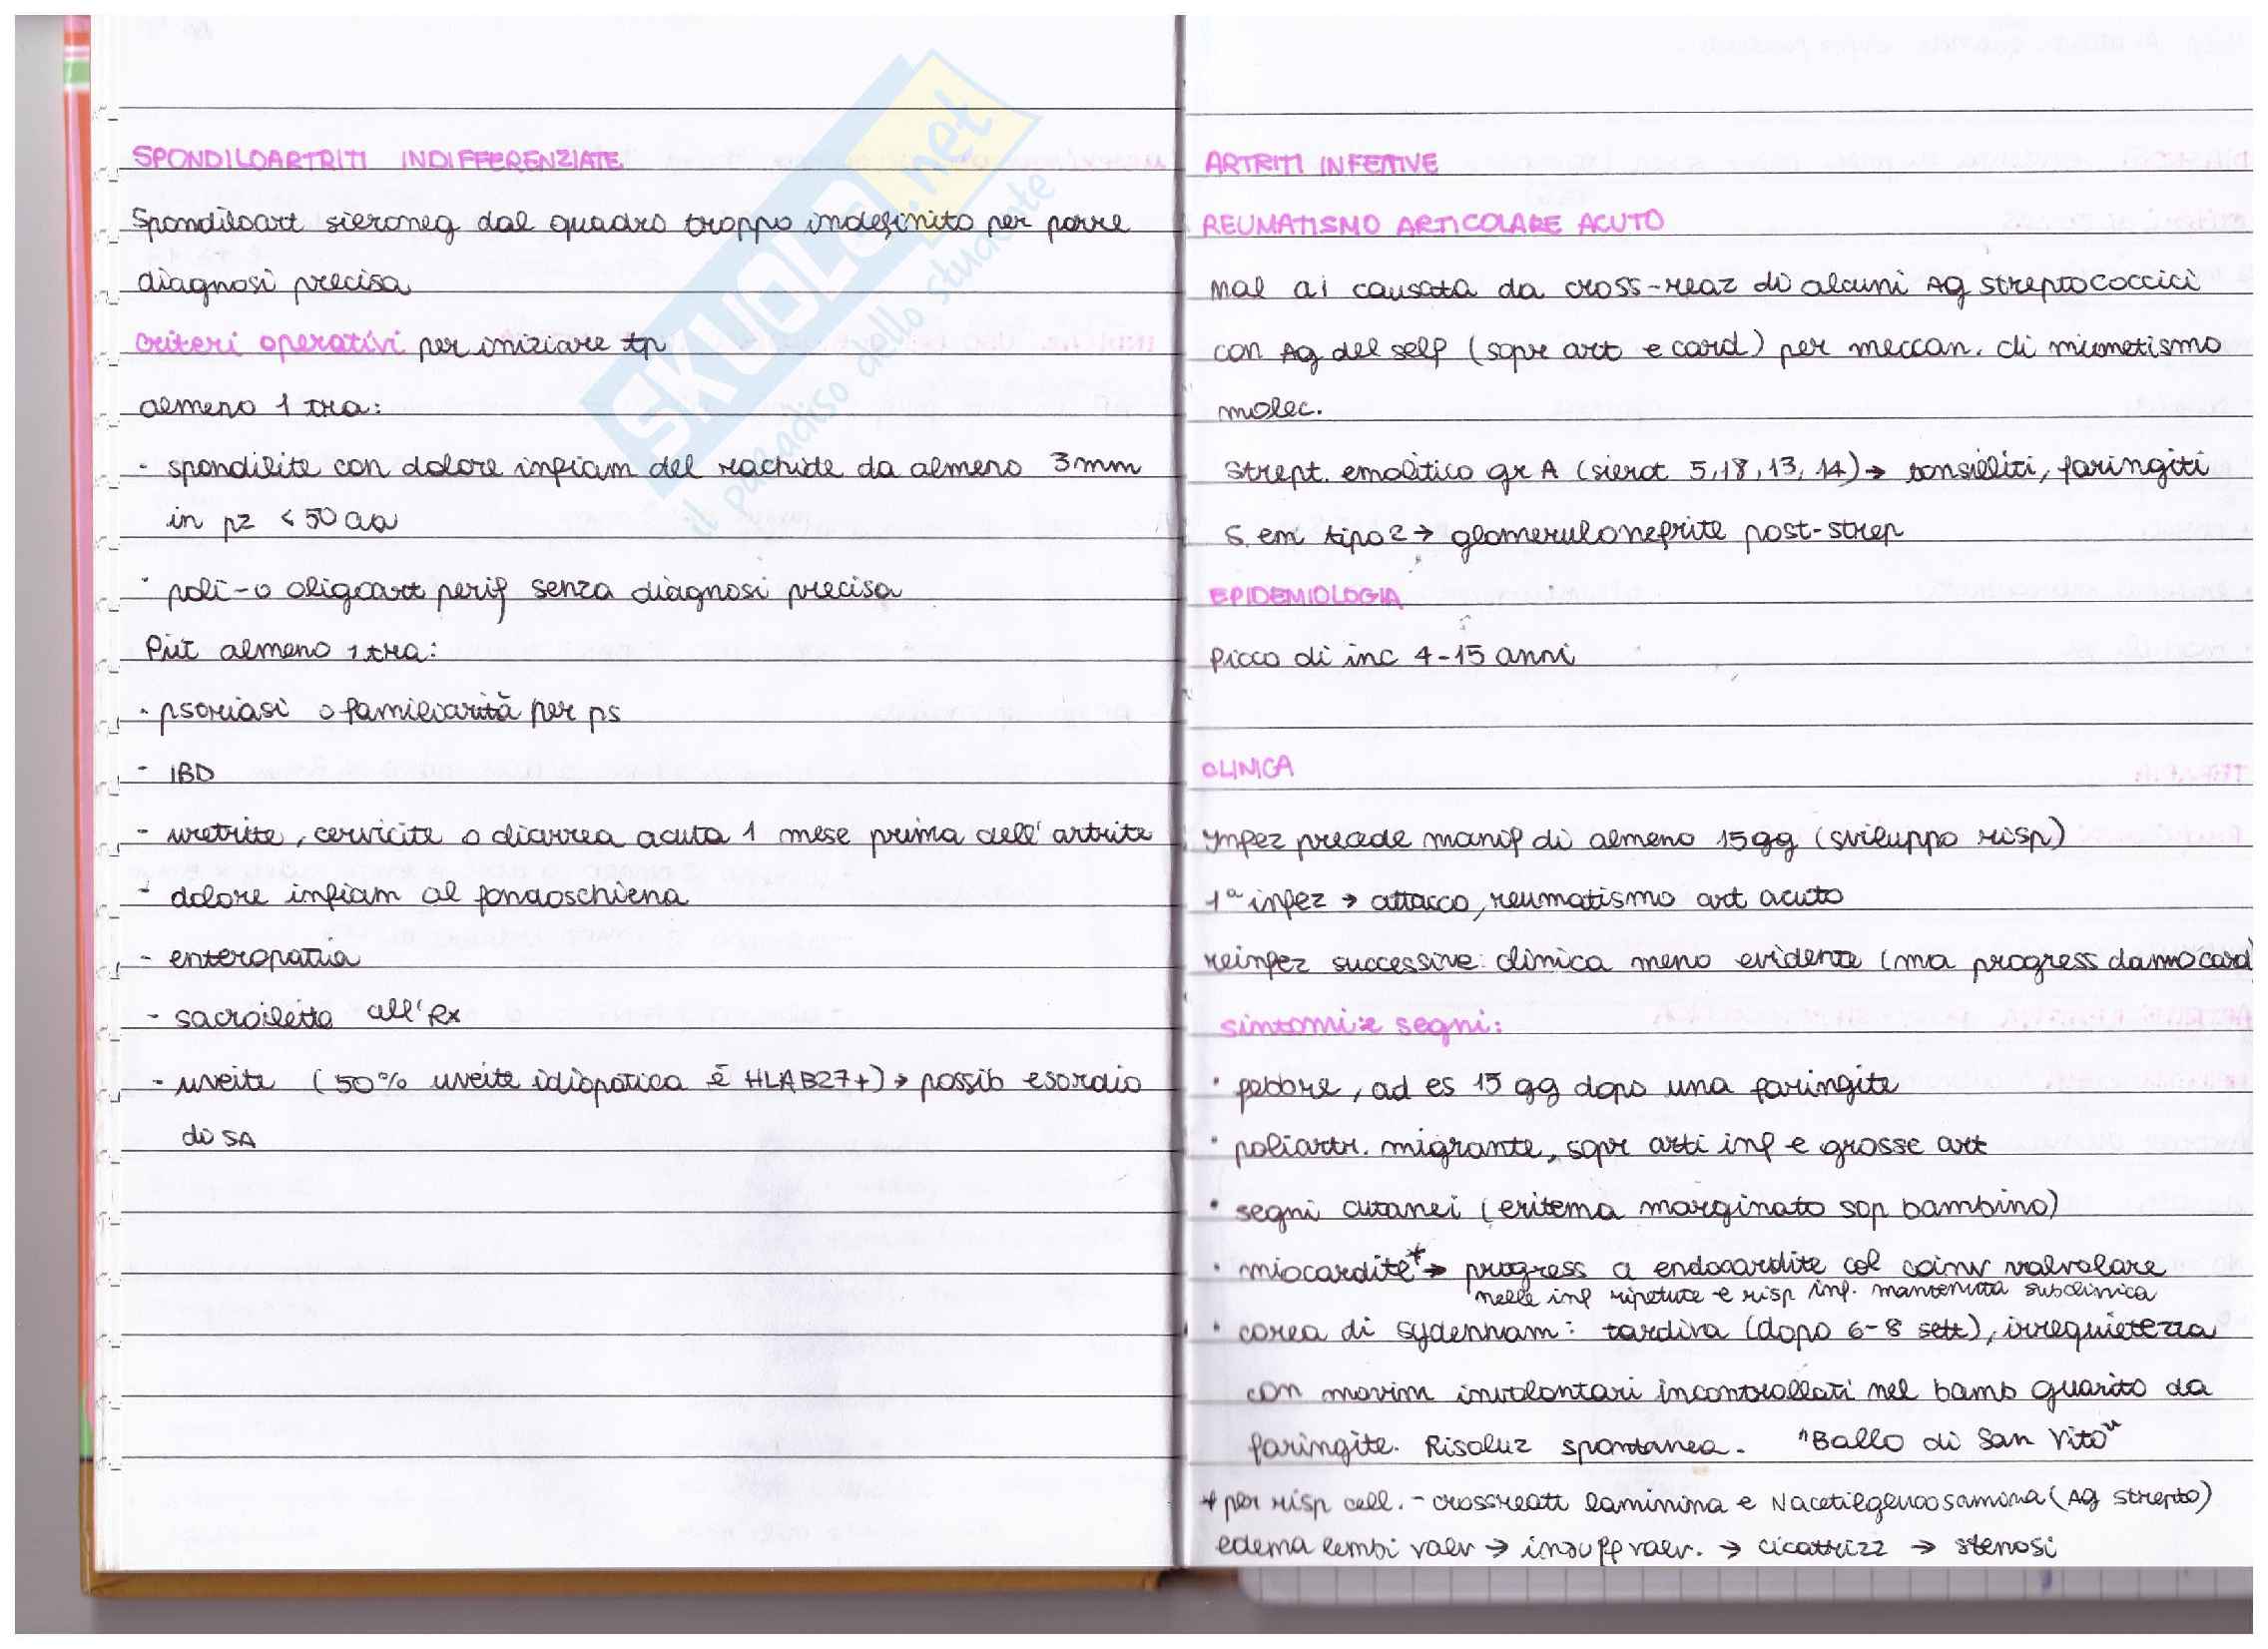 SPONDILOARTRITI INDIFFERENZIATE
Spondiloart sieroneg dal quadro troppo indefinito per porre
diagnosi precisa
criteri operativi per iniziare tp
almeno 1 tra:
- spondilite con dolore infiam del rachide da almeno 3mm
in pz < 50 aa
- poli-o oligoart perif senza diagnosi precisa
Più almeno 1 tra:
- psoriasi o familiarità per ps
- IBD
- uretrite, cervicite o diarrea acuta 1 mese prima dell'artrite
- dolore infiam al fondoschiena
- enteropatia
- sacroileite all'Rx
- uveite (50% uveite idiopatica è HLAB27+) → possib esordio
di SA
SKUOLA.net
il paradiso dello studente
ARTRITI INFETTIVE
REUMATISMO ARTICOLARE ACUTO
mal ai causata da cross-reaz di alcuni Ag streptococcici
con Ag del self (sopr art e card) per meccan. di mimetismo
molec.
Strept. emolitico gr A (sierot 5,18,13,14) → tonsilliti, faringiti
S. em tipo 2 → glomerulonefrite post-strep
EPIDEMIOLOGIA
Picco di inc 4-15 anni
CLINICA
Infez precede manif di almeno 15gg (sviluppo risp)
1ª infez → attacco, reumatismo art acuto
reinfez successive: clinica meno evidente (ma progress danno card
sintomi e segni:
• febbre, ad es 15 gg dopo una faringite
• poliartr. migrante, sopr arti inf e grosse art
• segni cutanei (eritema marginato sop bambino)
• miocardite* → progress a endocardite col coinv valvolare
nelle inf ripetute e risp inf. mantenuta subclinica
• corea di Sydenham: tardiva (dopo 6-8 sett), irrequietezza
con movim involontari incontrollati nel bamb guarito da
faringite. Risoluz spontanea. "Ballo di San Vito"
* per risp cell. - crossreatt laminina e Nacetilglucosamina (Ag strepto)
edema lembi valv → insuff valv. → cicatrizz → stenosi